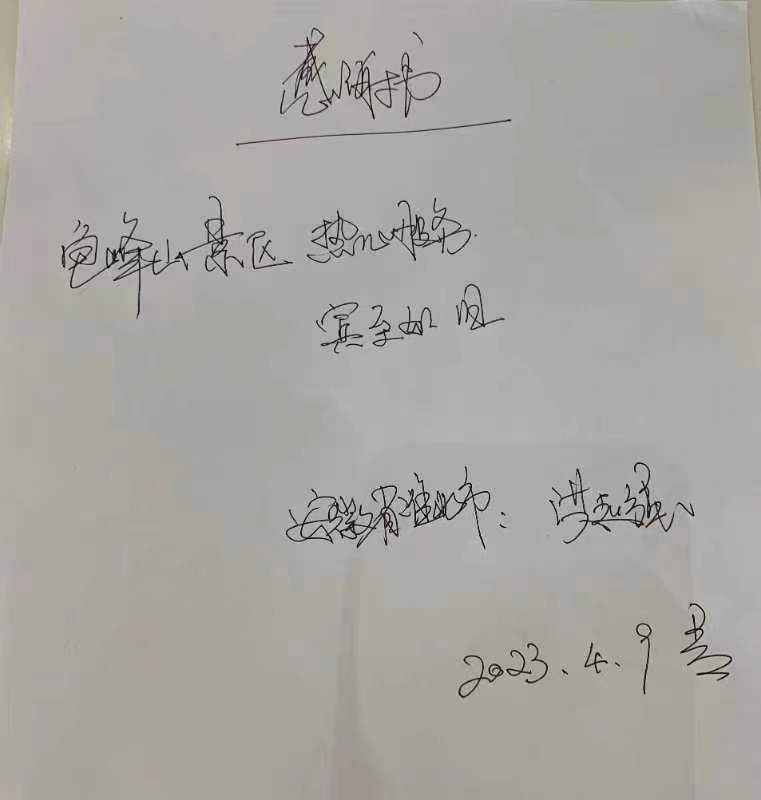 感谢书
龟峰山景区 热心服务
宾至如归
安徽省淮北市: 洪
2023.4.9 书